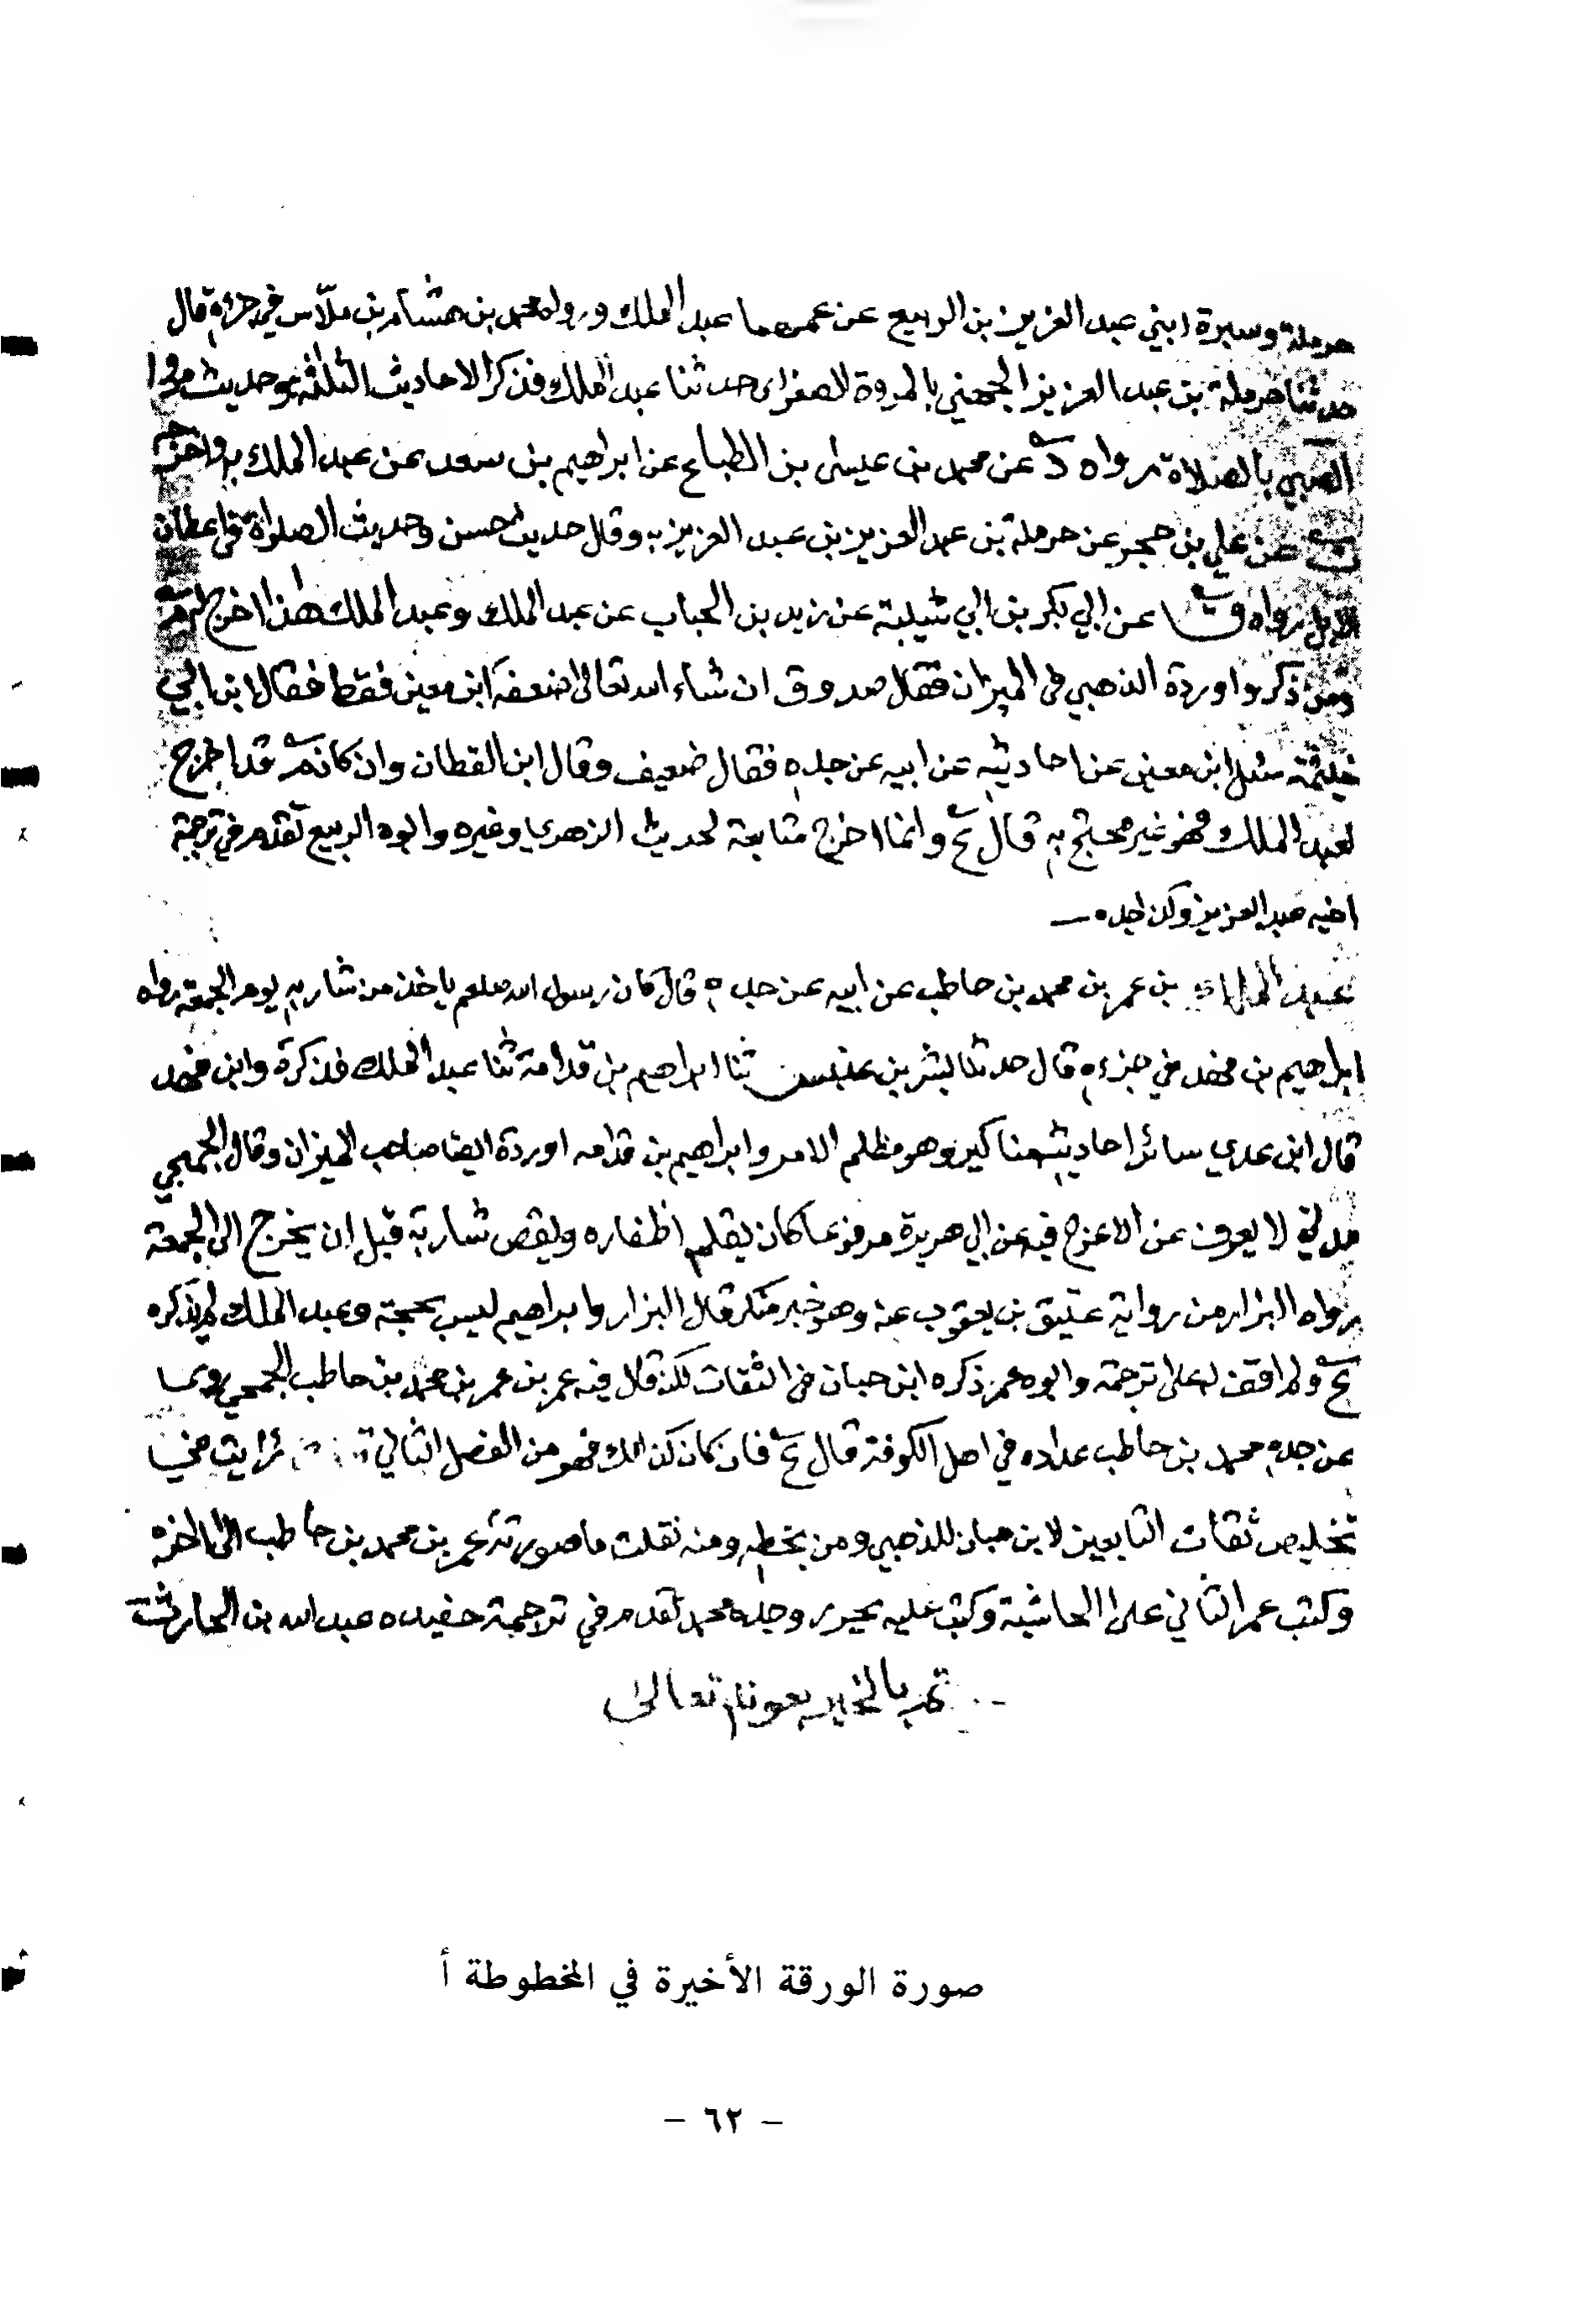 حرملة وسبرة ابني عبد العزيز بن الربيع عن عمهما عبد الملك ورواه محمد بن هشام بن ملاّس في جزءه قال
حدثنا حرملة بن عبد العزيز الجهني بالمروة حدثنا عبد الملك فذكر الاحاديث الثلثة وحديث مروا
الصبي بالصلاة رواه د عن محمد بن عيسى بن الطباع عن ابراهيم بن سعد عن عبد الملك به واخرجه
ت عن علي بن حجر عن حرملة بن عبد العزيز بن عبد العزيز به وقال حديث حسن وحديث الصلواة في اعطان
الابل رواه ق عن ابي بكر بن ابي شيبة عن زيد بن الحباب عن عبد الملك وعبد الملك هذا اخرج له م
ومن ذكر واوردة الذهبي في الميزان فقال صدوق ان شاء الله تعالى ضعفه ابن معين فقط فقال ابن ابي
خيثمة سئل ابن معين عن احاديثه عن ابيه عن جده فقال ضعيف وقال ابن القطان وان كان م قد اخرج
لعبد الملك فهو غير محتج به قال ع وانما اخرج متابعة لحديث الزهري وغيره وابوه الربيع تقدم في ترجمة
اخيه عبد العزيز وكذا جده
عبد الملك بن عمر بن محمد بن حاطب عن ابيه عن جده قال كان رسول الله صلعم ياخذ من شاربه يوم الجمعة رواه
ابراهيم بن فهد في جزءه قال حدثنا بشر بن عنبس ثنا ابراهيم بن قدامة ثنا عبد الملك فذكرة وابن فهد
قال ابن عدي سائر احاديثه مناكير وهو مظلم الامر وابراهيم بن قدامه اوردة ايضا صاحب الميزان وقال الجمحي
مدني لا يعرف عن الاعرج فيه عن ابي هريرة مرفوعا كان يقلم اظفاره ويقص شاربة قبل ان يخرج الى الجمعة
رواه البزار من رواية عتيق بن يعقوب عنه وهو خبر منكر قال البزار وابراهيم ليس بحجة وعبد الملك لم يذكره
ع ولم اقف له على ترجمة وابوه عمر ذكره ابن حبان في الثقات لكن قال فيه عمر بن عمر بن محمد بن حاطب الجمحي روى
عن جده محمد بن حاطب عداده في اهل الكوفة قال ع فان كان كذلك فهو من الفصل الثاني رايت في
تخليص ثقات التابعين لابن حبان للذهبي ومن بخطه ومنه نقلت ما صورته عمر بن محمد بن حاطب الى اخره
وكتب عمر الثاني على الحاشية وكتب عليه يحرر وجده محمد تقدم في ترجمة حفيده عبد الله بن الحارث
تم بالخير بعونه تعالى
صورة الورقة الأخيرة في المخطوطة أ
– ٦٢ –